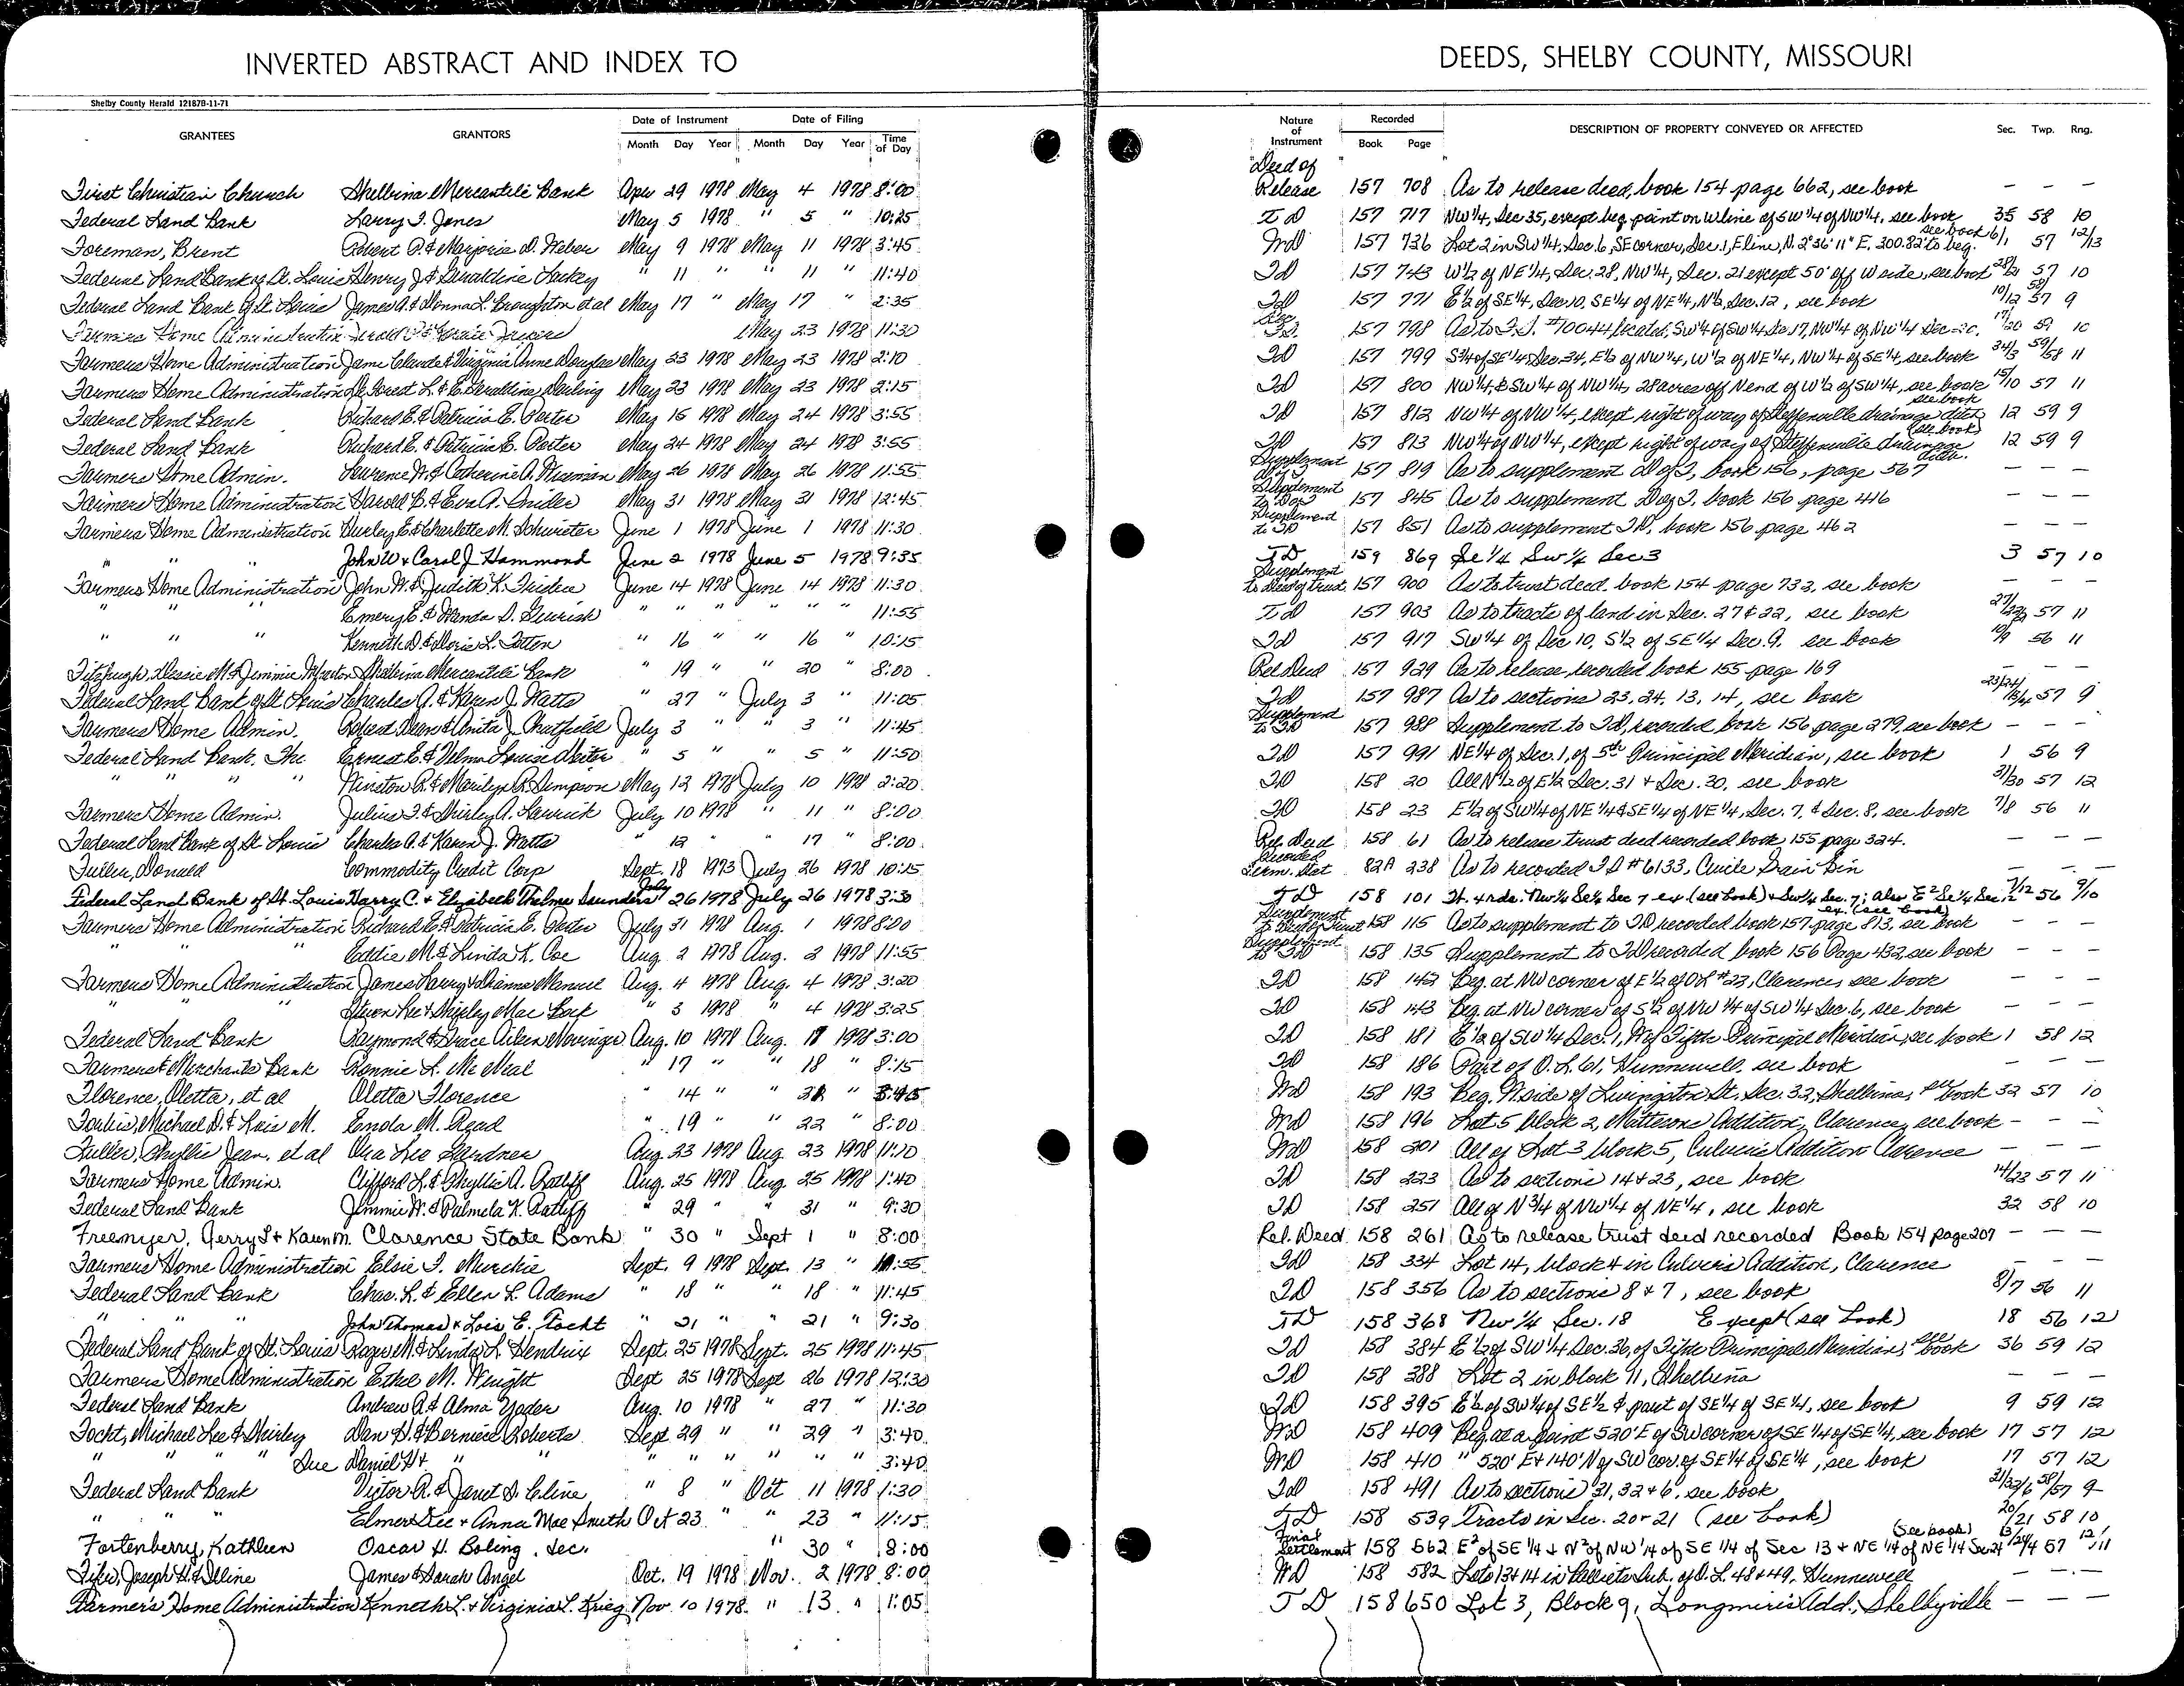 INVERTED ABSTRACT AND INDEX TO DEEDS, SHELBY COUNTY, MISSOURI
Shelby County Herald 12187B-11-71
GRANTEES GRANTORS Date of Instrument Date of Filing Nature of Instrument Recorded DESCRIPTION OF PROPERTY CONVEYED OR AFFECTED Sec. Twp. Rng.
Month Day Year Month Day Year Time of Day Book Page
First Christian Church Shelbina Mercantile Bank Apr 29 1978 May 4 1978 8:00 Deed of Release 157 708 As to release deed, book 154 page 662, see book — — —
Federal Land Bank Larry J. Jones May 5 1978 " 5 " 10:25 TD 157 717 NW 1/4, Sec 35, except beg. point on W line of SW 1/4 of NW 1/4, see book 35 58 10
Foreman, Brent Robert P. & Marjorie D. Weber May 9 1978 May 11 1978 3:45 WD 157 736 Lot 2 in SW 1/4, Sec. 6, SE corner, Sec. 1, E line, N. 2° 36' 11" E. 300.82' to beg. see book 6/1 57 12/13
Federal Land Bank of St. Louis Henry J. & Geraldine Lackey " 11 " " 11 " 11:40 TD 157 743 W 1/2 of NE 1/4, Sec. 28, NW 1/4, Sec. 21 except 50' off W side, see book 28/21 57 10
Federal Land Bank of St. Louis James A. & Donna L. Broughton et al May 17 " May 17 " 2:35 TD 157 771 E 1/2 of SE 1/4, Sec 10, SE 1/4 of NE 1/4, N 1/2, Sec. 12, see book 10/12 57 9
Farmers Home Administration May 23 1978 11:30 157 798 As to F.S. #10044 located, SW 1/4 of SW 1/4 Sec 17, NW 1/4 of NW 1/4 Sec 20. 17/20 59 10
Farmers Home Administration Jame Claude & Virginia Anne Douglas May 23 1978 May 23 1978 2:10 TD 157 799 S 1/4 of SE 1/4, Sec. 34, E 1/2 of NW 1/4, W 1/2 of NE 1/4, NW 1/4 of SE 1/4, see book 34/3 59/58 11
Farmers Home Administration De Forest L. & E. Geraldine Darling May 23 1978 May 23 1978 2:15 TD 157 800 NW 1/4, & SW 1/4 of NW 1/4, 28 acres off N end of W 1/2 of SW 1/4, see book 15/10 57 11
Federal Land Bank Richard E. & Patricia E. Porter May 16 1978 May 24 1978 3:55 TD 157 812 NW 1/4 of NW 1/4, except right of way of Steffenville drainage ditch see book 12 59 9
Federal Land Bank Richard E. & Patricia E. Porter May 24 1978 May 24 1978 3:55 TD 157 813 NW 1/4 of NW 1/4, except right of way of Steffenville drainage ditch. (see book) 12 59 9
Farmers Home Admin. Lawrence W. & Catherine A. May 26 1978 May 26 1978 11:55 Supplement D of T 157 819 As to supplement D of T, book 156, page 567 — — —
Farmers Home Administration Harold B. & Eva A. Snider May 31 1978 May 31 1978 12:45 Supplement to D of T 157 845 As to supplement D of T, book 156 page 416 — — —
Farmers Home Administration Burley E. & Charlotte M. Schwieter June 1 1978 June 1 1978 11:30 Supplement to TD 157 851 As to supplement TD, book 156 page 462 — — —
" " " John W & Carol J Hammond June 2 1978 June 5 1978 9:35 TD 159 869 Se 1/4 Sw 1/4 Sec 3 3 57 10
Farmers Home Administration John W. & Judith K. June 14 1978 June 14 1978 11:30 Supplement to Deed of trust 157 900 As to trust deed, book 154 page 733, see book — — —
" " " Emery E. & Wanda D. " " " " " " 11:55 TD 157 903 As to tracts of land in Sec. 27 & 22, see book 27/22 57 11
" " " Kenneth D. & Doris L. Totten " 16 " " 16 " 10:15 TD 157 917 SW 1/4 of Sec 10, S 1/2 of SE 1/4 Sec 9, see book 10/9 56 11
Fitzhugh, Jimmie Shelbina Mercantile Bank " 19 " " 20 " 8:00 Rel Deed 157 929 As to release, recorded book 155 page 169 — — —
Federal Land Bank of St. Louis Charles A. & Karen J. Watts " 27 " July 3 " 11:05 TD 157 987 As to sections 23, 24, 13, 14, see book 23/24/13/14 57 9
Farmers Home Admin. Robert Dean & Anita J. Chatfield July 3 " " 3 " 11:45 Supplement to TD 157 988 Supplement to TD, recorded book 156 page 279, see book — — —
Federal Land Bank, The Ernest E. & Velma Louise " 5 " " 5 " 11:50 TD 157 991 NE 1/4 of Sec. 1, of 5th Principal Meridian, see book 1 56 9
" " " " Winston R. & Marilyn R. Simpson May 12 1978 July 10 1978 2:20 TD 158 20 All N 1/2 of E 1/2 Sec. 31 & Sec. 30, see book 31/30 57 12
Farmers Home Admin. Julius F. & Shirley A. July 10 1978 " 11 " 8:00 TD 158 23 E 1/2 of SW 1/4 of NE 1/4 & SE 1/4 of NE 1/4, Sec. 7, & Sec. 8, see book 7/8 56 11
Federal Land Bank of St. Louis Charles A. & Karen J. Watts " 12 " " 17 " 8:00 Rel. Deed 158 61 As to release trust deed recorded book 155 page 324. — — —
Fuller, Donald Commodity Credit Corp Sept. 18 1973 July 26 1978 10:15 Recorded Term. Stat 82A 238 As to recorded FS #6133, Circle Drain Bin — — —
Federal Land Bank of St. Louis Harry C. & Elizabeth Thelma Saunders July 26 1978 July 26 1978 3:30 TD 158 101 St. 4 rds. Nw 1/4 Se 1/4 Sec 7 ex (see book) & Sw 1/4 Sec. 7; also E 2 Se 1/4 Sec. 12 ex. (see book) 7/12 56 9/10
Farmers Home Administration Richard E. & Patricia E. Porter July 31 1978 Aug. 1 1978 8:00 Supplement to Deed of Trust 158 115 As to supplement to TD recorded book 157 page 813, see book — — —
" " " Eddie M. & Linda K. Coe Aug. 2 1978 Aug. 2 1978 11:55 Supplement to TD 158 135 Supplement to TD recorded book 156 Page 432, see book — — —
Farmers Home Administration James Harry & Dianna Manuel Aug. 4 1978 Aug. 4 1978 3:20 TD 158 142 Beg. at NW corner of E 1/2 of OL #23, Clarence, see book — — —
" " " Steven Lee & Shirley Mae Buck " 3 1978 " 4 1978 3:25 TD 158 143 Beg. at NW corner of S 1/2 of NW 1/4 of SW 1/4 Sec. 6, see book — — —
Federal Land Bank Raymond & Grace Aileen Novinger Aug. 10 1978 Aug. 17 1978 3:00 TD 158 181 E 1/2 of SW 1/4 Sec. 1, W of Fifth Principal Meridian, see book 1 58 12
Farmers & Merchants Bank Ronnie L. Mc Neal " 17 " " 18 " 8:15 TD 158 186 Part of O.L. 61, Hunnewell, see book — — —
Florence, Oletta, et al Oletta Florence " 14 " " 21 " 8:45 WD 158 193 Beg. N side of Livingston St, Sec. 32, Shelbina, see book 32 57 10
Michael D. & Lois M. Enola M. Read " 19 " " 22 " 8:00 WD 158 196 Lot 5 block 2, Mattesons Addition, Clarence, see book — — —
Fuller, Phyllis Jean, et al Ora Lee Gardner Aug. 23 1978 Aug 23 1978 11:10 WD 158 201 All of Lot 3 block 5, Culvers Addition Clarence — — —
Farmers Home Admin. Clifford L. & Phyllis A. Ratliff Aug. 25 1978 Aug. 25 1978 1:40 TD 158 223 As to sections 14 & 23, see book 14/23 57 11
Federal Land Bank Jimmie W. & Palmela K. Ratliff " 29 " " 31 " 9:30 TD 158 251 All of N 3/4 of NW 1/4 of NE 1/4, see book 32 58 10
Freemyer, Jerry L & Karen M. Clarence State Bank " 30 " Sept 1 " 8:00 Rel. Deed 158 261 As to release trust deed recorded Book 154 page 207 — — —
Farmers Home Administration Elsie I. Murchie Sept. 9 1978 Sept. 13 " 10:55 TD 158 334 Lot 14, block 4 in Culvers Addition, Clarence — — —
Federal Land Bank Chas. L. & Ellen L. Adams " 18 " " 18 " 11:45 TD 158 356 As to sections 8 & 7, see book 8/7 56 11
" " " John Thomas & Lois E. Tocht " 21 " " 21 " 9:30 TD 158 368 Nw 1/4 Sec. 18 Except (see book) 18 56 12
Federal Land Bank of St. Louis Roger M. & Linda L. Hendrix Sept. 25 1978 Sept. 25 1978 11:45 TD 158 384 E 1/2 of SW 1/4 Sec. 36, of Fifth Principal Meridian, see book 36 59 12
Farmers Home Administration Ethel M. Wright Sept 25 1978 Sept 26 1978 12:30 TD 158 388 Lot 2 in block 11, Shelbina — — —
Federal Land Bank Andrew A. & Alma Yoder Aug. 10 1978 " 27 " 11:30 TD 158 395 E 1/2 of SW 1/4 of SE 1/2 & part of SE 1/4 of SE 1/4, see book 9 59 12
Focht, Michael Lee & Shirley Dan H. & Berniece Roberts Sept 29 " " 29 " 3:40 WD 158 409 Beg. at a point 520' E of SW corner of SE 1/4 of SE 1/4, see book 17 57 12
" " " " Sue Daniel H & " " " " " " " 3:40 WD 158 410 " 520' E & 140' N of SW cor. of SE 1/4 of SE 1/4, see book 17 57 12
Federal Land Bank Victor R. & Janet S. Cline " 8 " Oct 11 1978 1:30 TD 158 491 As to sections 31, 32 & 6, see book 31/32/6 58/57 9
" " " Elmer Dee & Anna Mae Smith Oct 23 " " 23 " 11:15 TD 158 539 Tracts in Sec. 20 & 21 (see book) 20/21 58 10
Fortenberry, Kathleen Oscar H. Boling, dec. " 30 " 8:00 Final Settlement 158 562 E 2 of SE 1/4 & N 2 of NW 1/4 of SE 1/4 of Sec 13 & NE 1/4 of NE 1/4 Sec 24 (see book) 13/24/4 57 12/11
Joseph H. & Iline James & Sarah Angel Oct. 19 1978 Nov. 2 1978 8:00 WD 158 582 Lots 13 & 14 in Sub. of O.L. 48 & 49, Hunnewell — — —
Farmer's Home Administration Kenneth L. & Virginia L. Krieg Nov. 10 1978. " 13 " 1:05 TD 158 650 Lot 3, Block 9, Longmire's Add., Shelbyville — — —